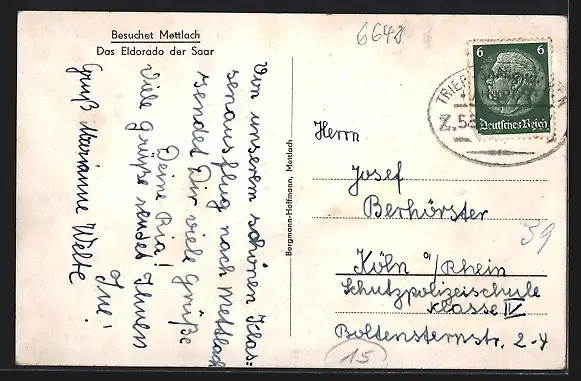 Besuchet Mettlach
Das Eldorado der Saar
6648
Von unserem schönen Klas=
senausflug nach Mettlach
sendet Dir viele Grüße
Deine Ria!
Viele Grüße sendet Ihnen
Ine!
Gruß Marianne Welte
Bergmann-Hoffmann, Mettlach
6 6
Deutsches Reich
TRIER
Z.58
Herrn
Josef
Berhörster
Köln a/Rhein
Schutzpolizeischule
Klasse IV
Boltensternstr. 2-4
59
15